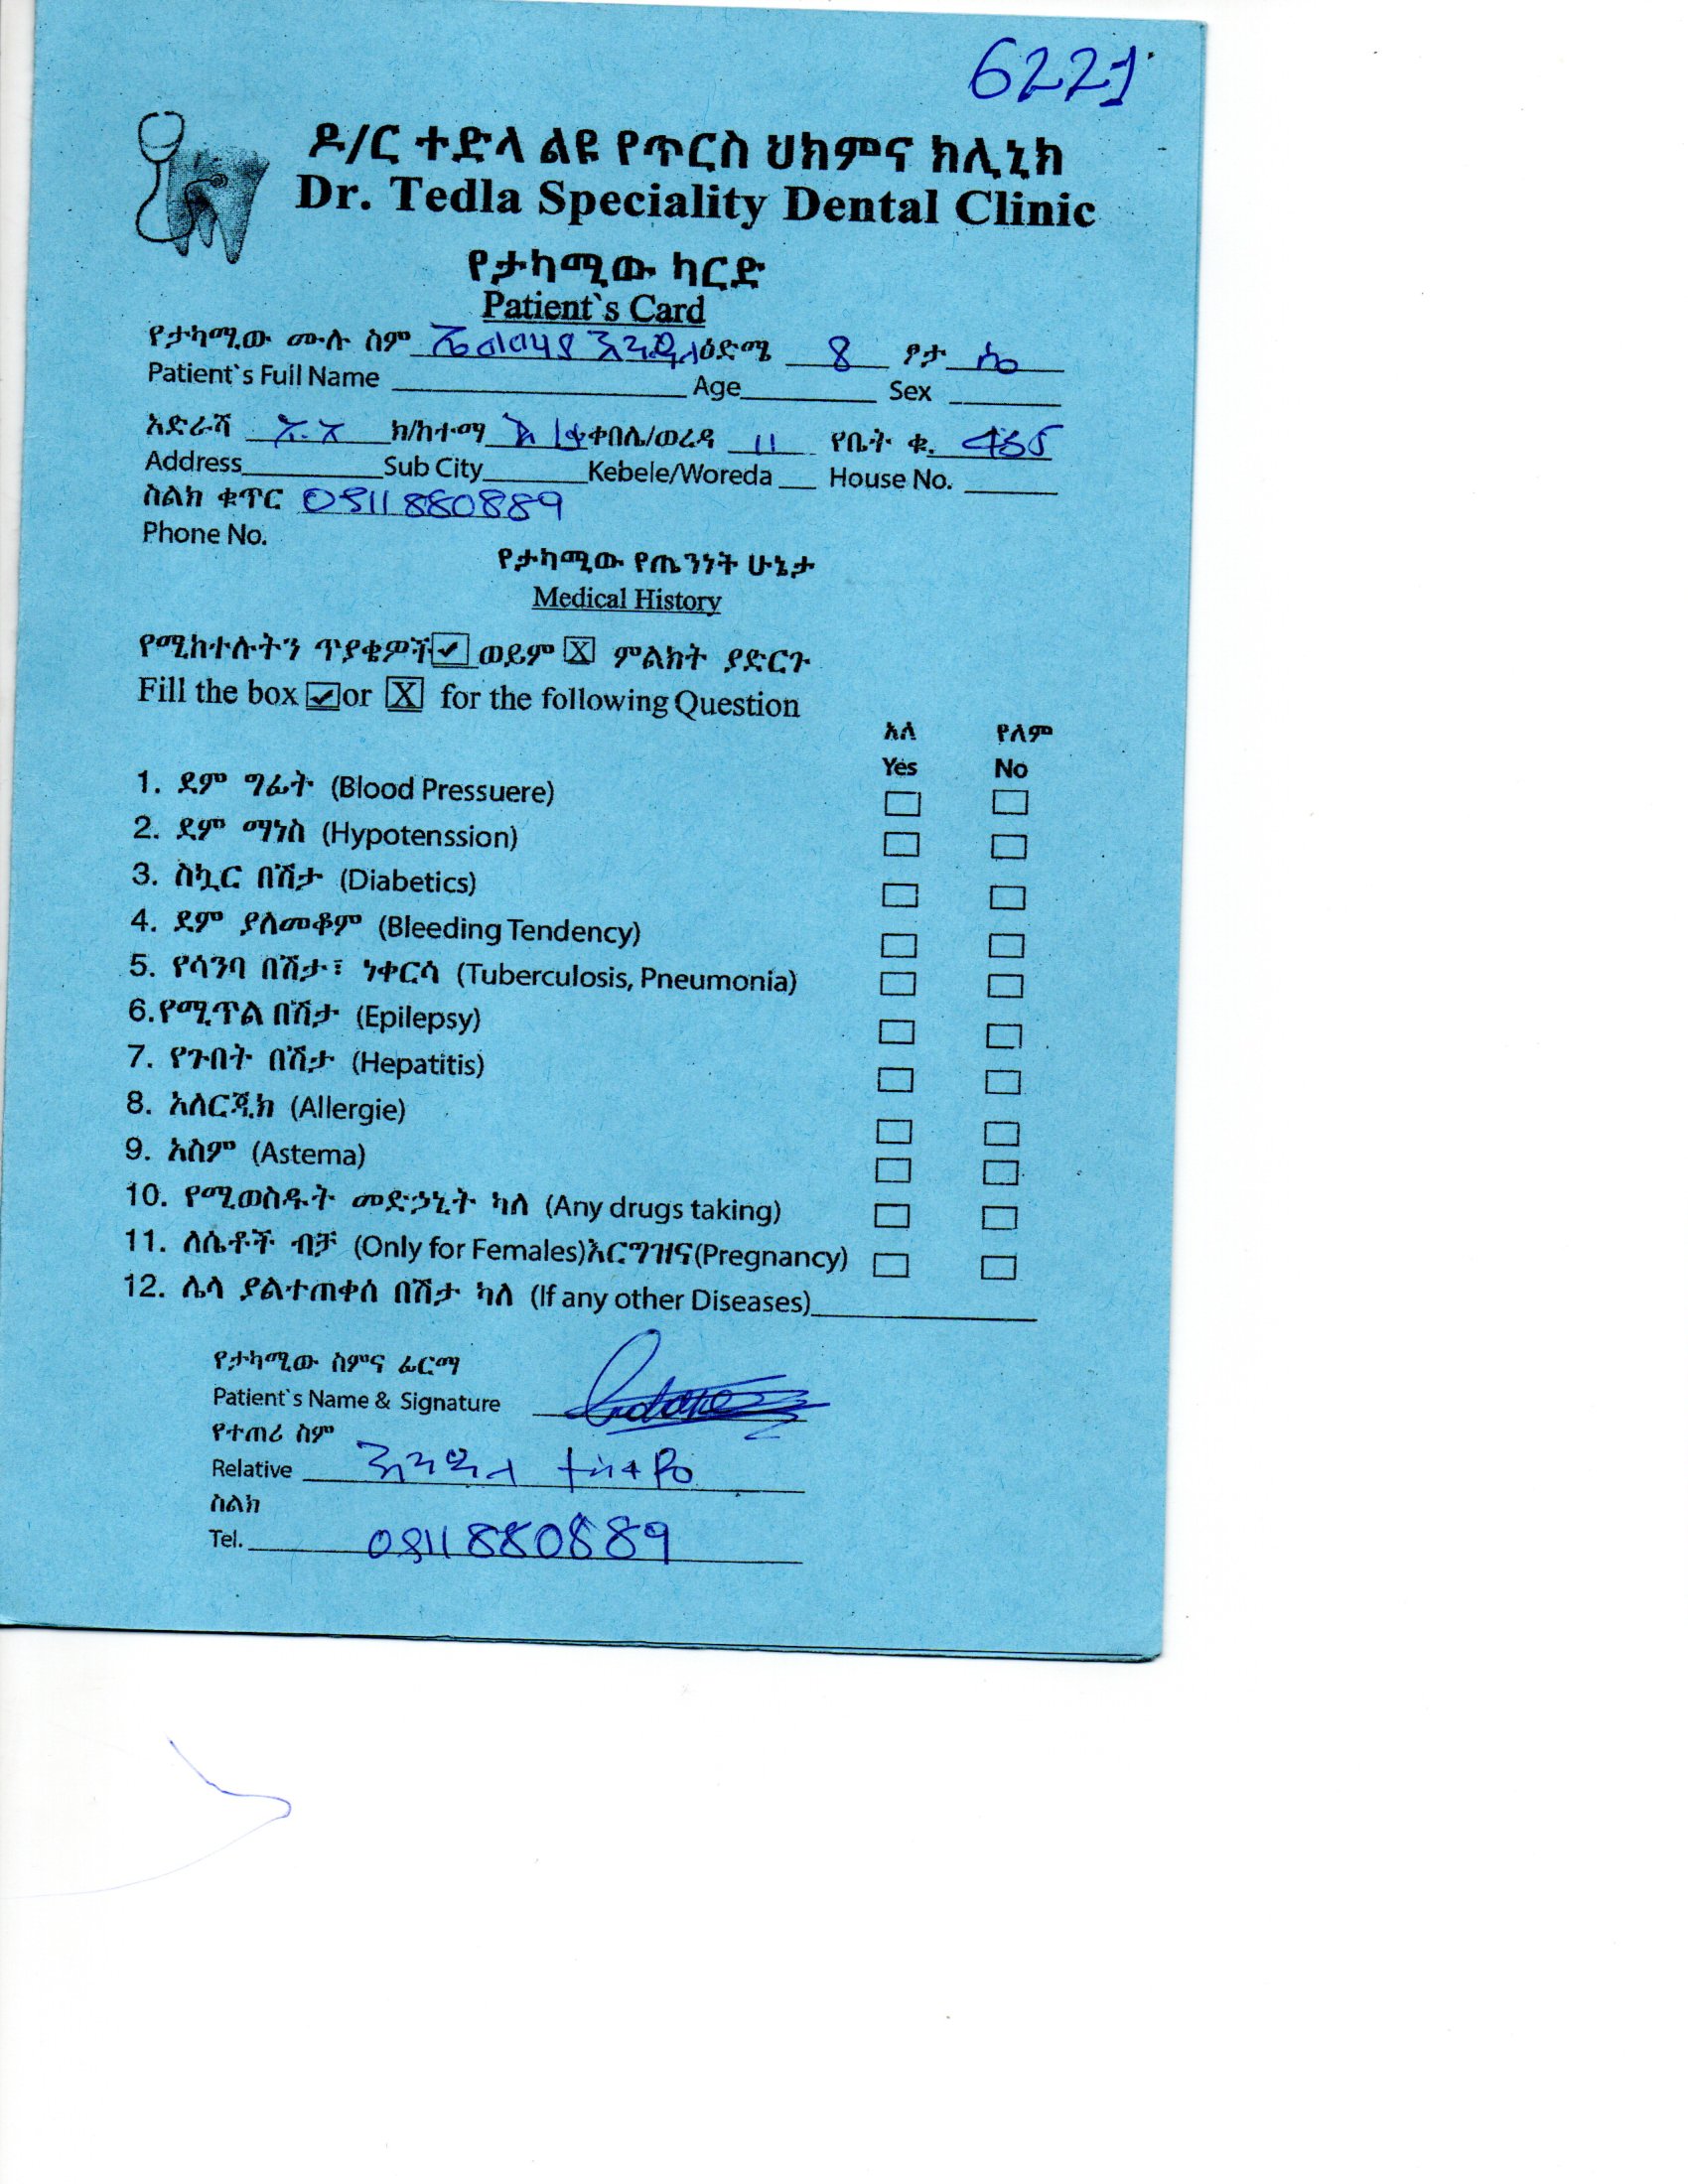 6221
ዶ/ር ተድላ ልዩ የጥርስ ህክምና ክሊኒክ
Dr. Tedla Speciality Dental Clinic
የታካሚው ካርድ
Patient`s Card
የታካሚው ሙሉ ስም ዕድሜ 8 ፆታ
Patient`s Full Name Age Sex
አድራሻ ክ/ከተማ ቀበሌ/ወረዳ 11 የቤት ቁ. 435
Address Sub City Kebele/Woreda House No.
ስልክ ቁጥር 0911880889
Phone No.
የታካሚው የጤንነት ሁኔታ
Medical History
የሚከተሉትን ጥያቄዎች ✓ ወይም X ምልክት ያድርጉ
Fill the box ✓ or X for the following Question
አለ የለም
Yes No
1. ደም ግፊት (Blood Pressuere)
2. ደም ማነስ (Hypotenssion)
3. ስኳር በሽታ (Diabetics)
4. ደም ያለመቆም (Bleeding Tendency)
5. የሳንባ በሽታ፣ ነቀርሳ (Tuberculosis, Pneumonia)
6.የሚጥል በሽታ (Epilepsy)
7. የጉበት በሽታ (Hepatitis)
8. አለርጂክ (Allergie)
9. አስም (Astema)
10. የሚወስዱት መድኃኒት ካለ (Any drugs taking)
11. ለሴቶች ብቻ (Only for Females)እርግዝና(Pregnancy)
12. ሌላ ያልተጠቀሰ በሽታ ካለ (If any other Diseases)
የታካሚው ስምና ፊርማ
Patient`s Name & Signature
የተጠሪ ስም
Relative
ስልክ
Tel. 0911880889